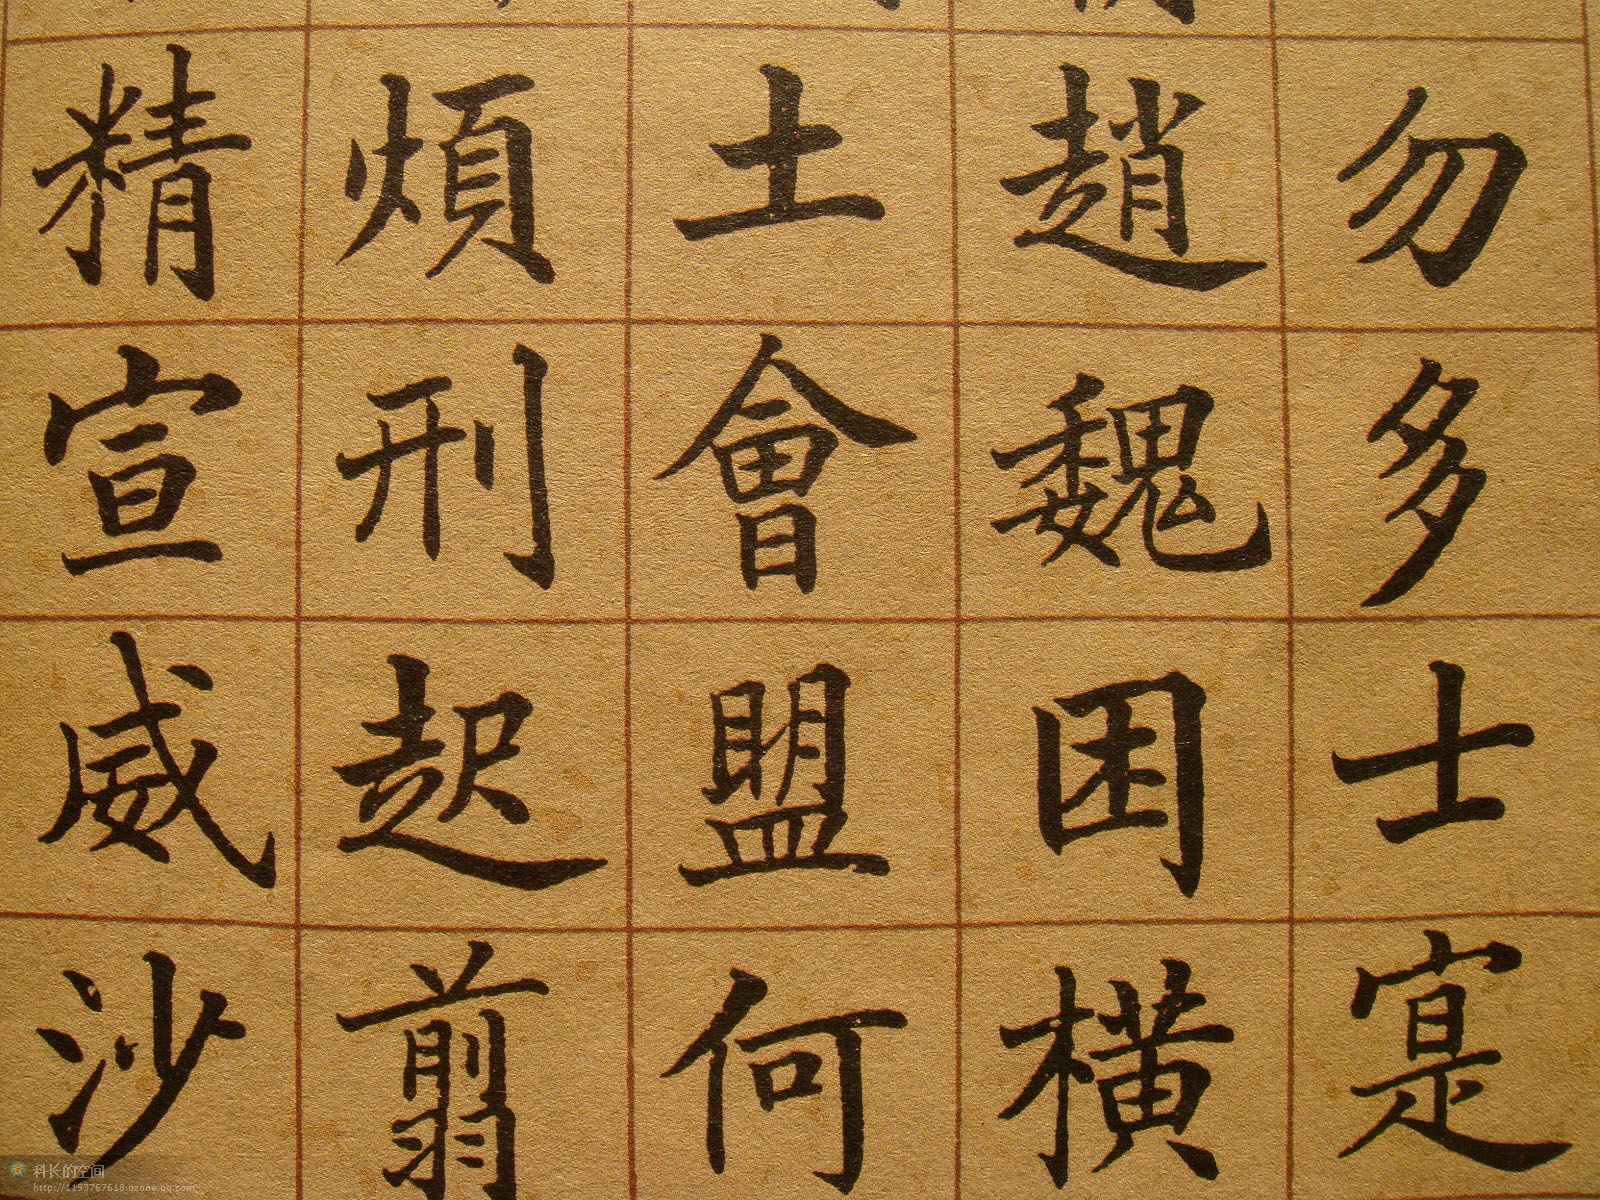 勿多士寔
趙魏困橫
土會盟何
煩刑起翦
精宣威沙
科长的空间
http://1193767618.qzone.qq.com